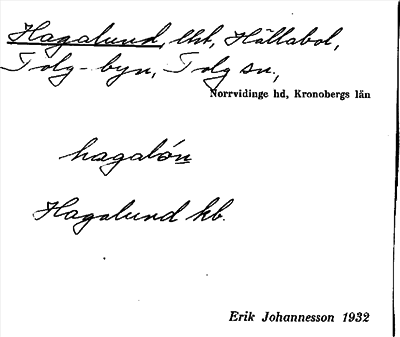 Hagalund, lht, Hällabol,
Tolg-byn, Tolg sn.,
Norrvidinge hd, Kronobergs län
hagalón
Hagalund kb.
Erik Johannesson 1932